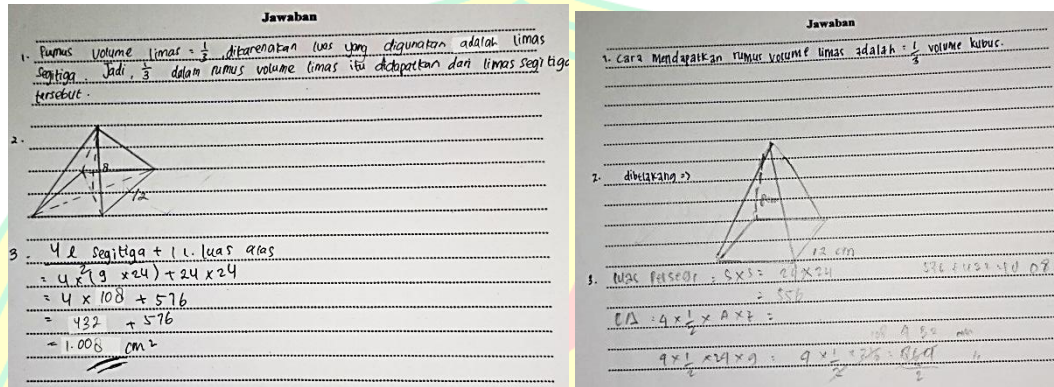 Jawaban
1. Rumus volume limas = 1/3, dikarenakan luas yang digunakan adalah limas
Segitiga. Jadi, 1/3 dalam rumus volume limas itu didapatkan dari limas segitiga
tersebut.
2.
8
12
3. 4 l segitiga + 1 l. luas alas
= 4 × (9 × 24) + 24 × 24
= 4 × 108 + 576
= 432 + 576
= 1.008 cm²
Jawaban
1. Cara Mendapatkan rumus volume limas adalah = 1/3 volume kubus.
2. dibelakang =>
12 cm
3. luas Persegi : S×S = 24×24
LΔ : 4 × 1/2 × A × t =